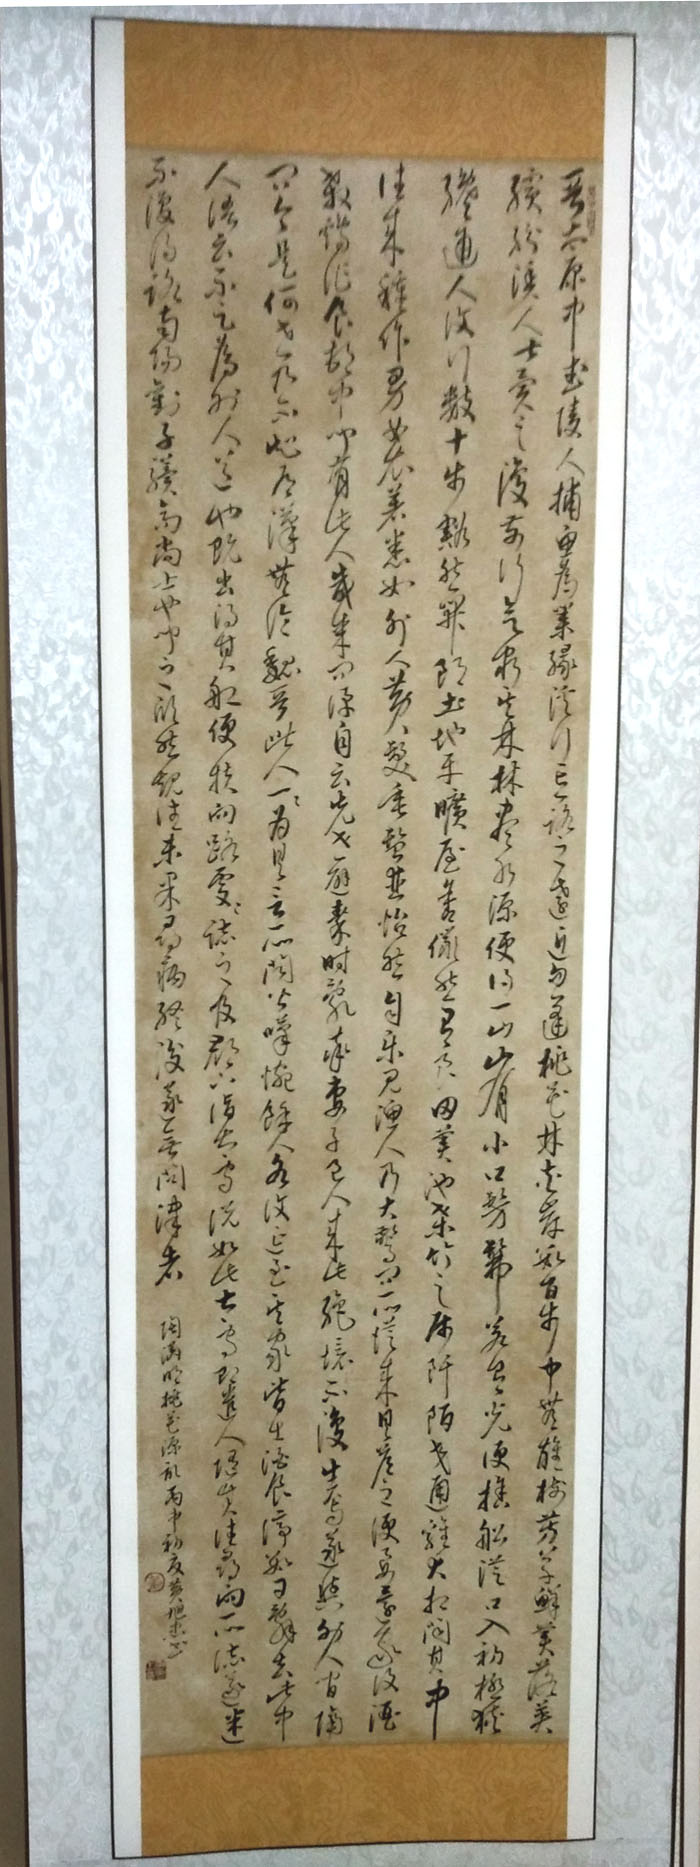 晉太原中武陵人捕魚為業緣溪行忘路之遠近忽逢桃花林夾岸數百步中無雜樹芳草鮮美落英
繽紛漁人甚異之復前行欲窮其林林盡水源便得一山山有小口髣髴若有光便捨船從口入初極狹
纔通人復行數十步豁然開朗土地平曠屋舍儼然有良田美池桑竹之屬阡陌交通雞犬相聞其中
往來種作男女衣著悉如外人黃髮垂髫並怡然自樂見漁人乃大驚問所從來具答之便要還家設酒
殺雞作食村中聞有此人咸來問訊自云先世避秦時亂率妻子邑人來此絕境不復出焉遂與外人間隔
問今是何世乃不知有漢無論魏晉此人一一為具言所聞皆嘆惋餘人各復延至其家皆出酒食停數日辭去此中
人語云不足為外人道也既出得其船便扶向路處處誌之及郡下詣太守說如此太守即遣人隨其往尋向所誌遂迷
不復得路南陽劉子驥高尚士也聞之欣然規往未果尋病終後遂無問津者
陶淵明桃花源記丙申初夏黃